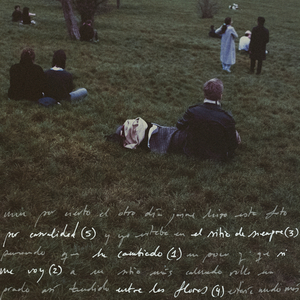 mira por cierto el otro día jaime hizo esta foto
por casualidad (5) y yo estaba en el sitio de siempre (3)
pensando que ha cambiado (1) un poco y que si
me voy (2) a un sitio más calentito
prado así tendido entre las flores (4) estaría mucho más